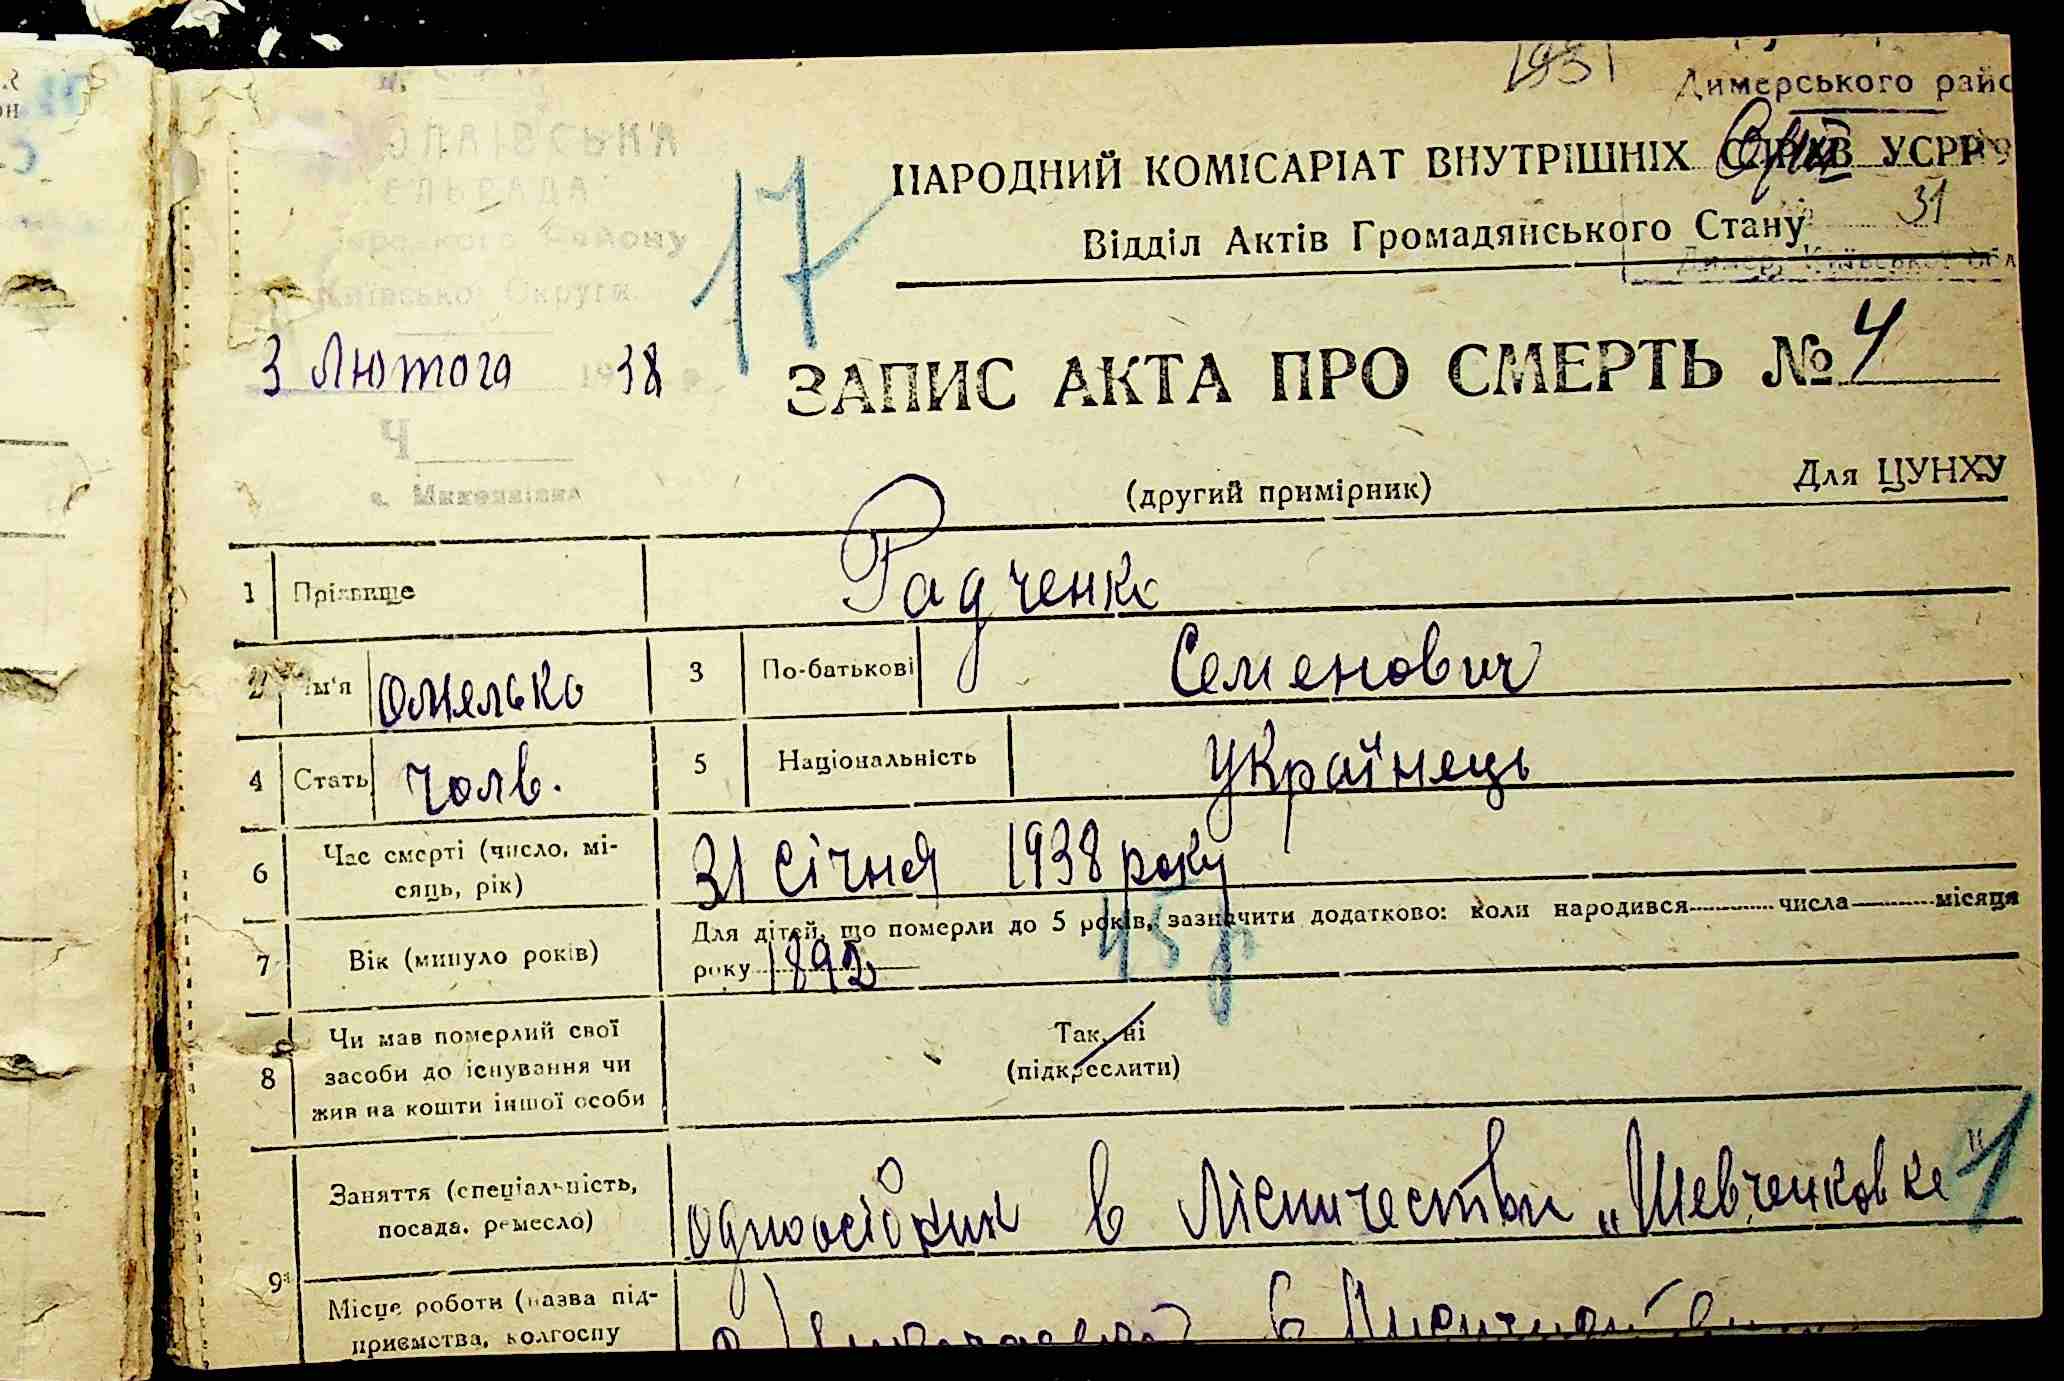 1931
Димерського райо
ОЛАЇВСЬКА
ЕЛЬРАДА
Району
Київської Округи
17
НАРОДНИЙ КОМІСАРІАТ ВНУТРІШНІХ СПРАВ УСРР
Відділ Актів Громадянського Стану
31
Димер, Київської обл
3 Лютого 1938 р.
ЗАПИС АКТА ПРО СМЕРТЬ № 4
Ч
с.
(другий примірник)
Для ЦУНХУ
1 Прізвище Радченко
2 Ім'я Омелько 3 По-батькові Семенович
4 Стать чолв. 5 Національність Українець
6 Час смерті (число, мі-
сяць, рік) 31 січня 1938 року
7 Вік (минуло років) Для дітей, що померли до 5 років, зазначити додатково: коли народився числа місяця
року 1892 45 р
8 Чи мав померлий свої
засоби до існування чи
жив на кошти іншої особи
Так, ні
(підкреслити)
9 Заняття (спеціальність,
посада, ремесло) одноосібник в лісничестви „Шевченковке" 1
Місце роботи (назва під-
приємства, колгоспу